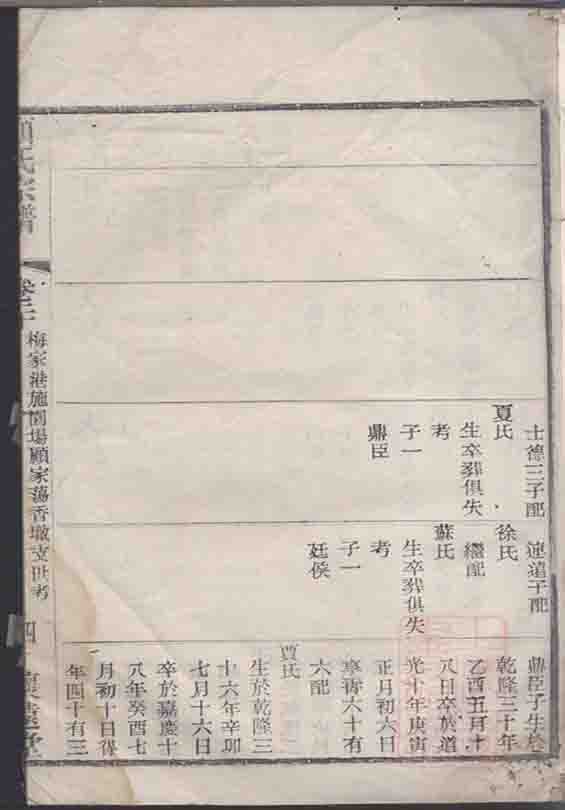 士德三子配
夏氏
生卒葬俱失
考
子一
鼎臣
連遠子配
徐氏
繼配
蘇氏
生卒葬俱失
考
子一
廷侯
鼎臣子生於
乾隆三十年
乙酉五月十
八日卒於道
光十年庚寅
正月初六日
享壽六十有
六配
賈氏
生於乾隆三
十六年辛卯
七月十六日
卒於嘉慶十
八年癸酉七
月初十日得
年四十有三
顧氏宗譜
卷二
梅家港施圍場顧家蕩香墩支世考
四